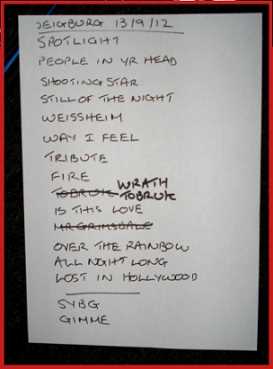 ZEIGBURG 13/9/12
SPOTLIGHT
PEOPLE IN YR HEAD
SHOOTING STAR
STILL OF THE NIGHT
WEISSHEIM
WAY I FEEL
TRIBUTE
FIRE
TOBRUK WRATH
TOBRUK
IS THIS LOVE
MR GRIMSDALE
OVER THE RAINBOW
ALL NIGHT LONG
LOST IN HOLLYWOOD
SYBG
GIMME